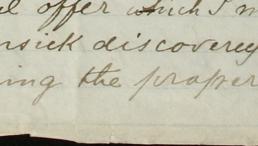 offer which I m
nsick discovery
ing the proper